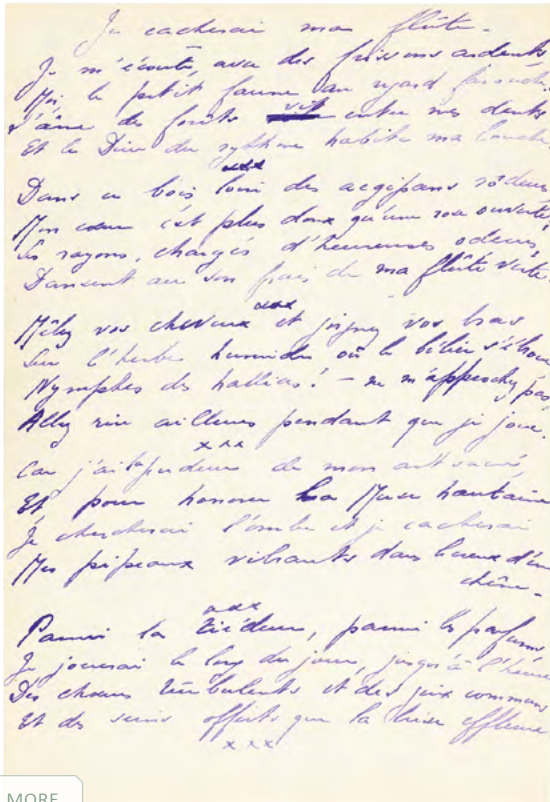 Je cacherai ma flûte -
Je m'écoute, avec des frissons ardents
Moi, le petit faune au regard farouche.
L'âme des forêts vit entre mes dents
Et le Dieu du rythme habite ma bouche.
xxx
Dans ce bois loin des aegipans rôdeurs
Mon cœur est plus doux qu'une rose ouverte,
Les rayons, chargés d'heureuses odeurs,
Dansent au son frais de ma flûte verte
xxx
Mêlez vos cheveux et joignez vos bras
Sur l'herbe humide où le bélier s'ébrou
Nymphes des halliers ! - ne m'approchez pas,
Allez rire ailleurs pendant que je joue.
xxx
Car j'ai la pudeur de mon art sacré,
Et pour honorer la Muse hautaine
Je chercherai l'ombre et je cacherai
Mes pipeaux vibrants dans le creux d'un
chêne -
xxx
Parmi la tiédeur, parmi les parfums
Je jouerai le long du jour, jusqu'à l'heure
Des chœurs turbulents et des jeux communs
Et des seins offerts que la brise effleure
xxx
MORE